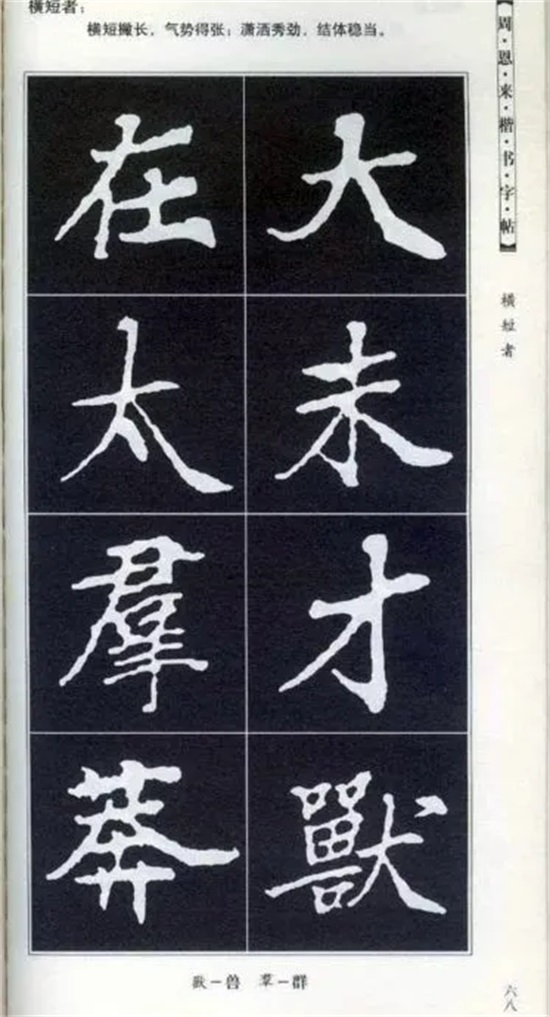 横短者：
横短撇长，气势得张；潇洒秀劲，结体稳当。
【周·恩·来·楷·书·字·帖】
横短者
大未才獸
在太羣莽
獸－兽 羣－群
六八